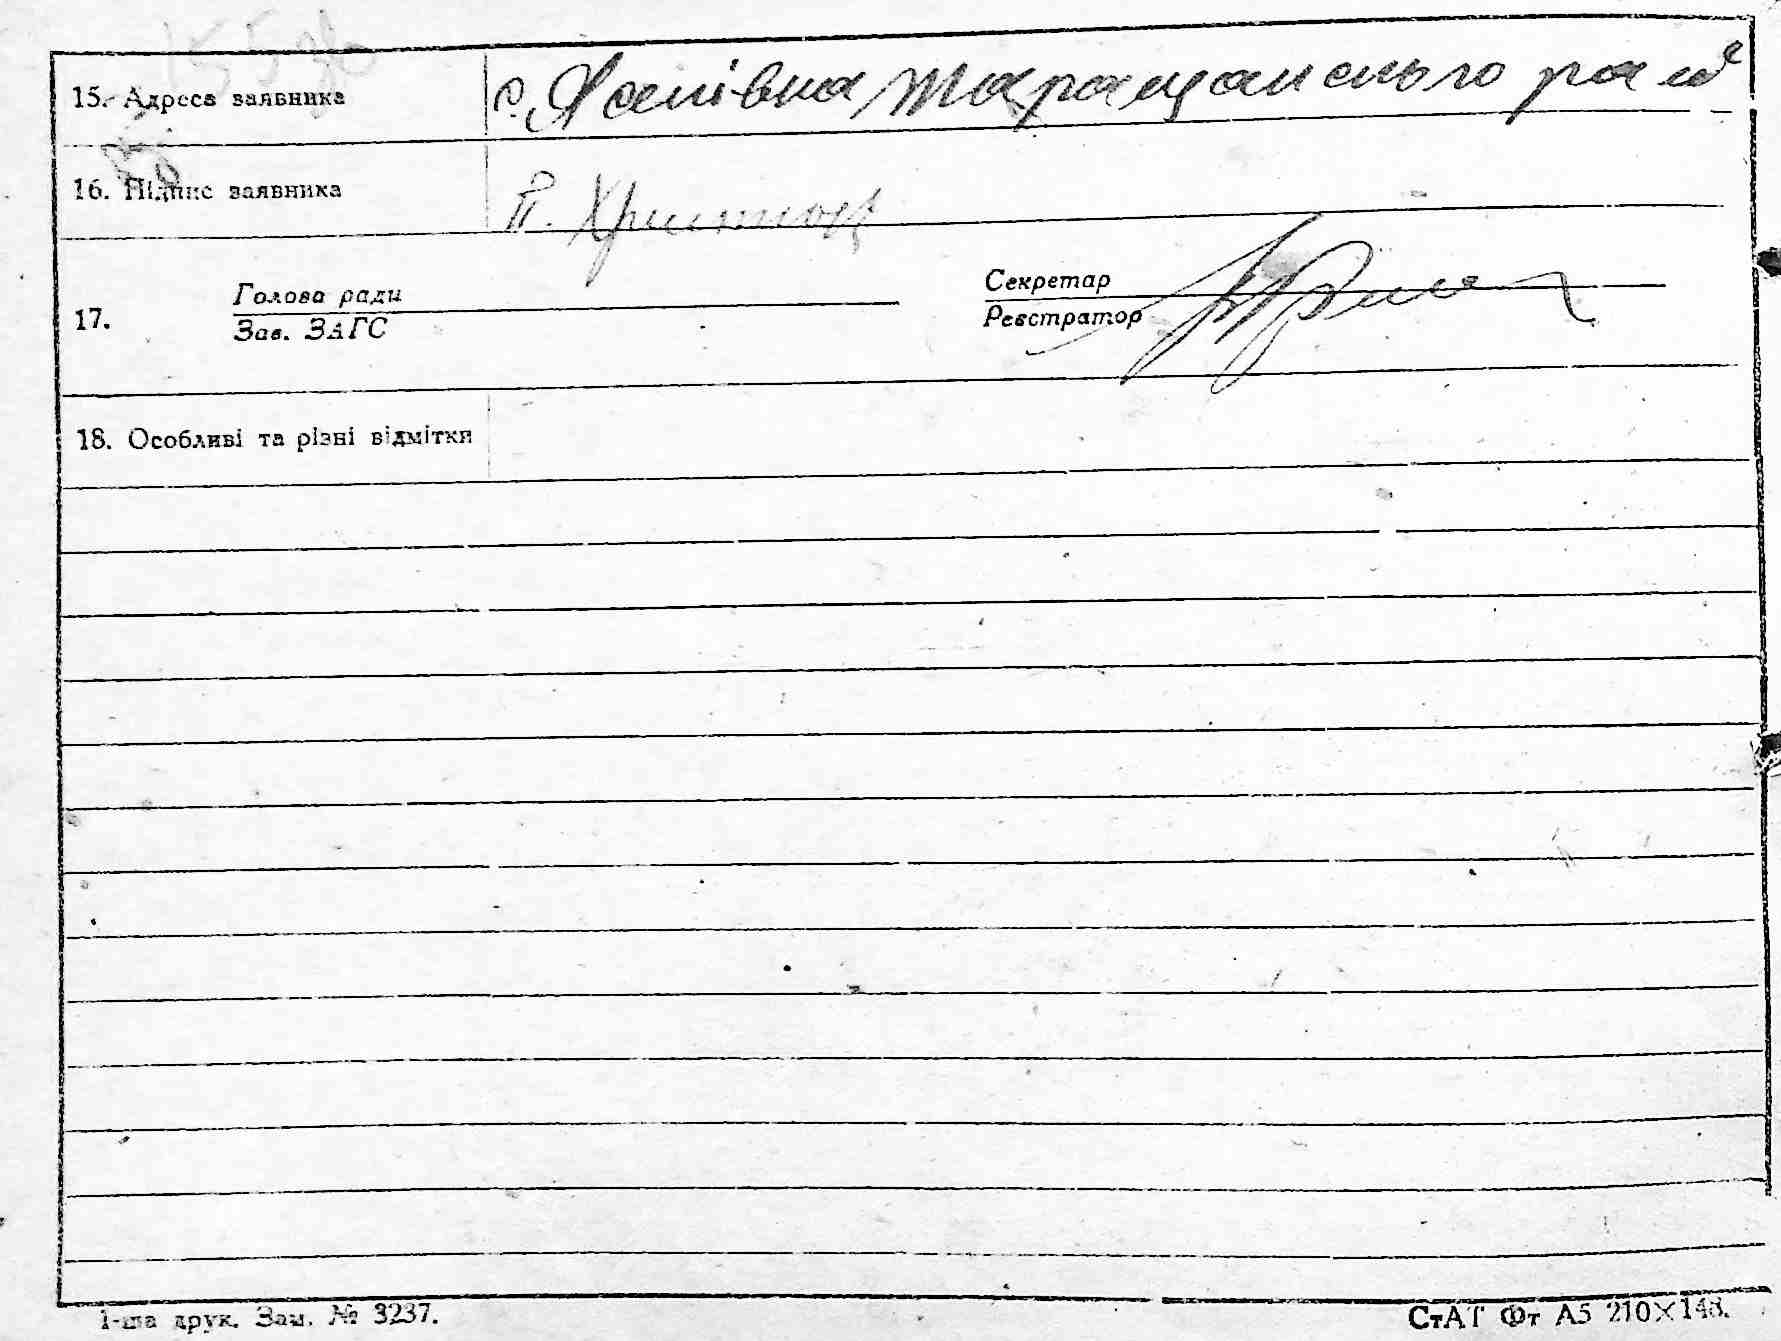 15. Адреса заявника с. Лисівка Таращанського рай
16. Підпис заявника П.
17. Голова ради
Зав. ЗАГС
Секретар
Реєстратор
18. Особливі та різні відмітки
1-ша друк. Зам. № 3237.
СтАТ Фт А5 210×148.